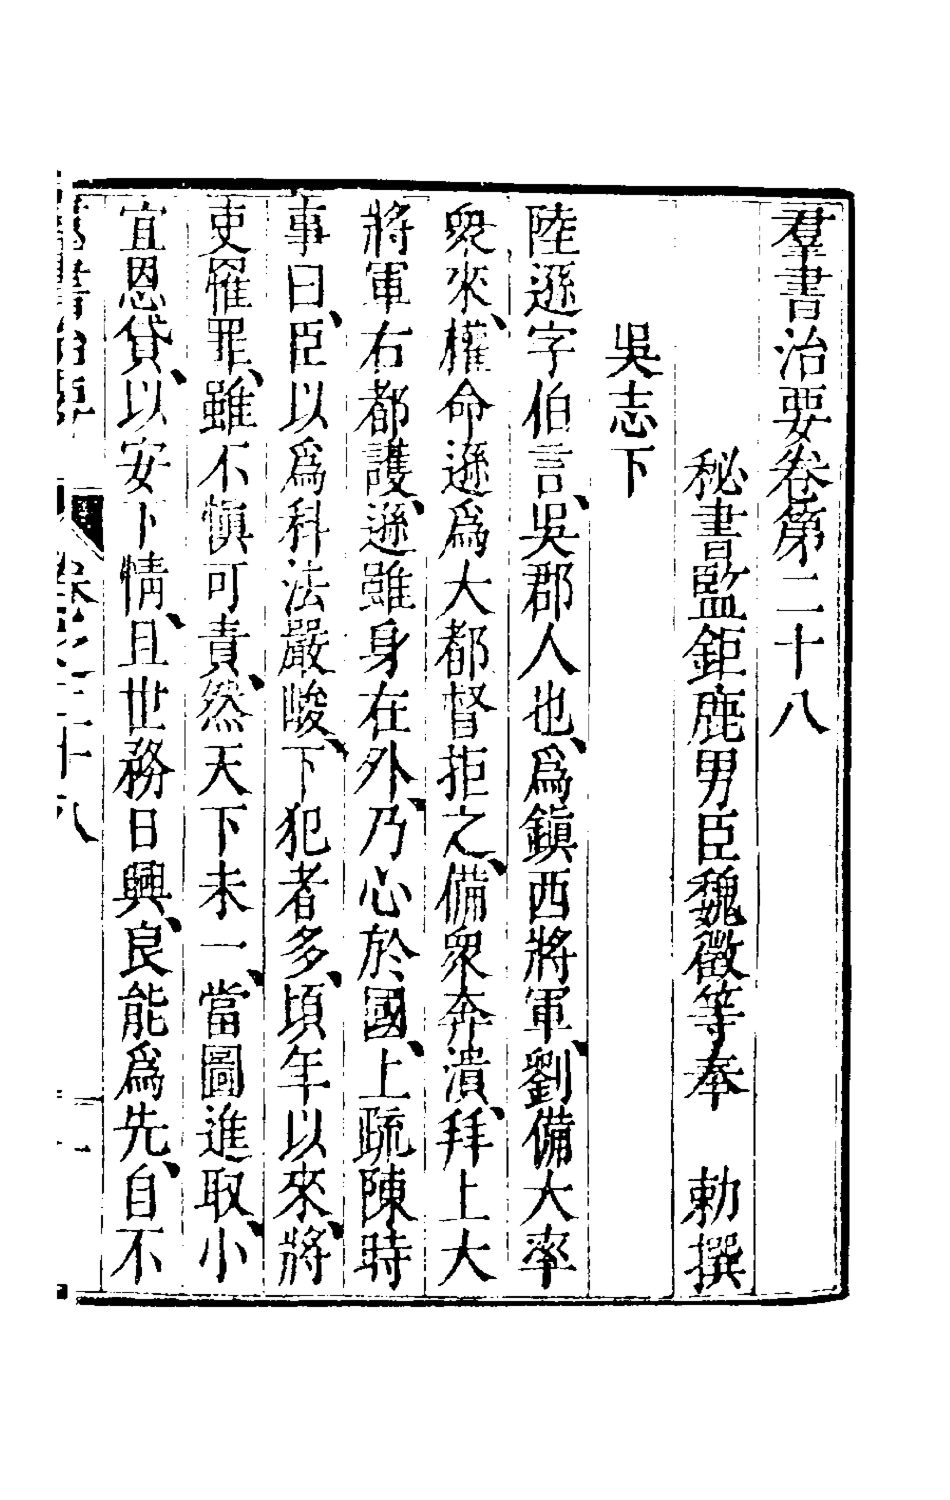 羣書治要卷第二十八
秘書監鉅鹿男臣魏徵等奉　勅撰
吳志下
陸遜字伯言、吳郡人也、爲鎭西將軍、劉備大率
衆來、權命遜爲大都督拒之、備衆奔潰、拜上大
將軍右都護、遜雖身在外、乃心於國、上疏陳時
事曰、臣以爲科法嚴峻、下犯者多、頃年以來、將
吏罹罪、雖不愼可責、然天下未一、當圖進取、小
宜恩貸、以安下情、且世務日興、良能爲先、自不
羣書治要　卷之二十八　一